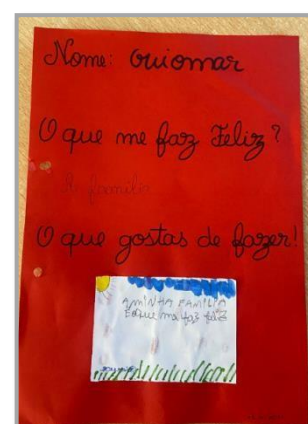 Nome: Guiomar
O que me faz Feliz?
A família
O que gostas de fazer!
A MINHA FAMÍLIA
É o que me faz feliz